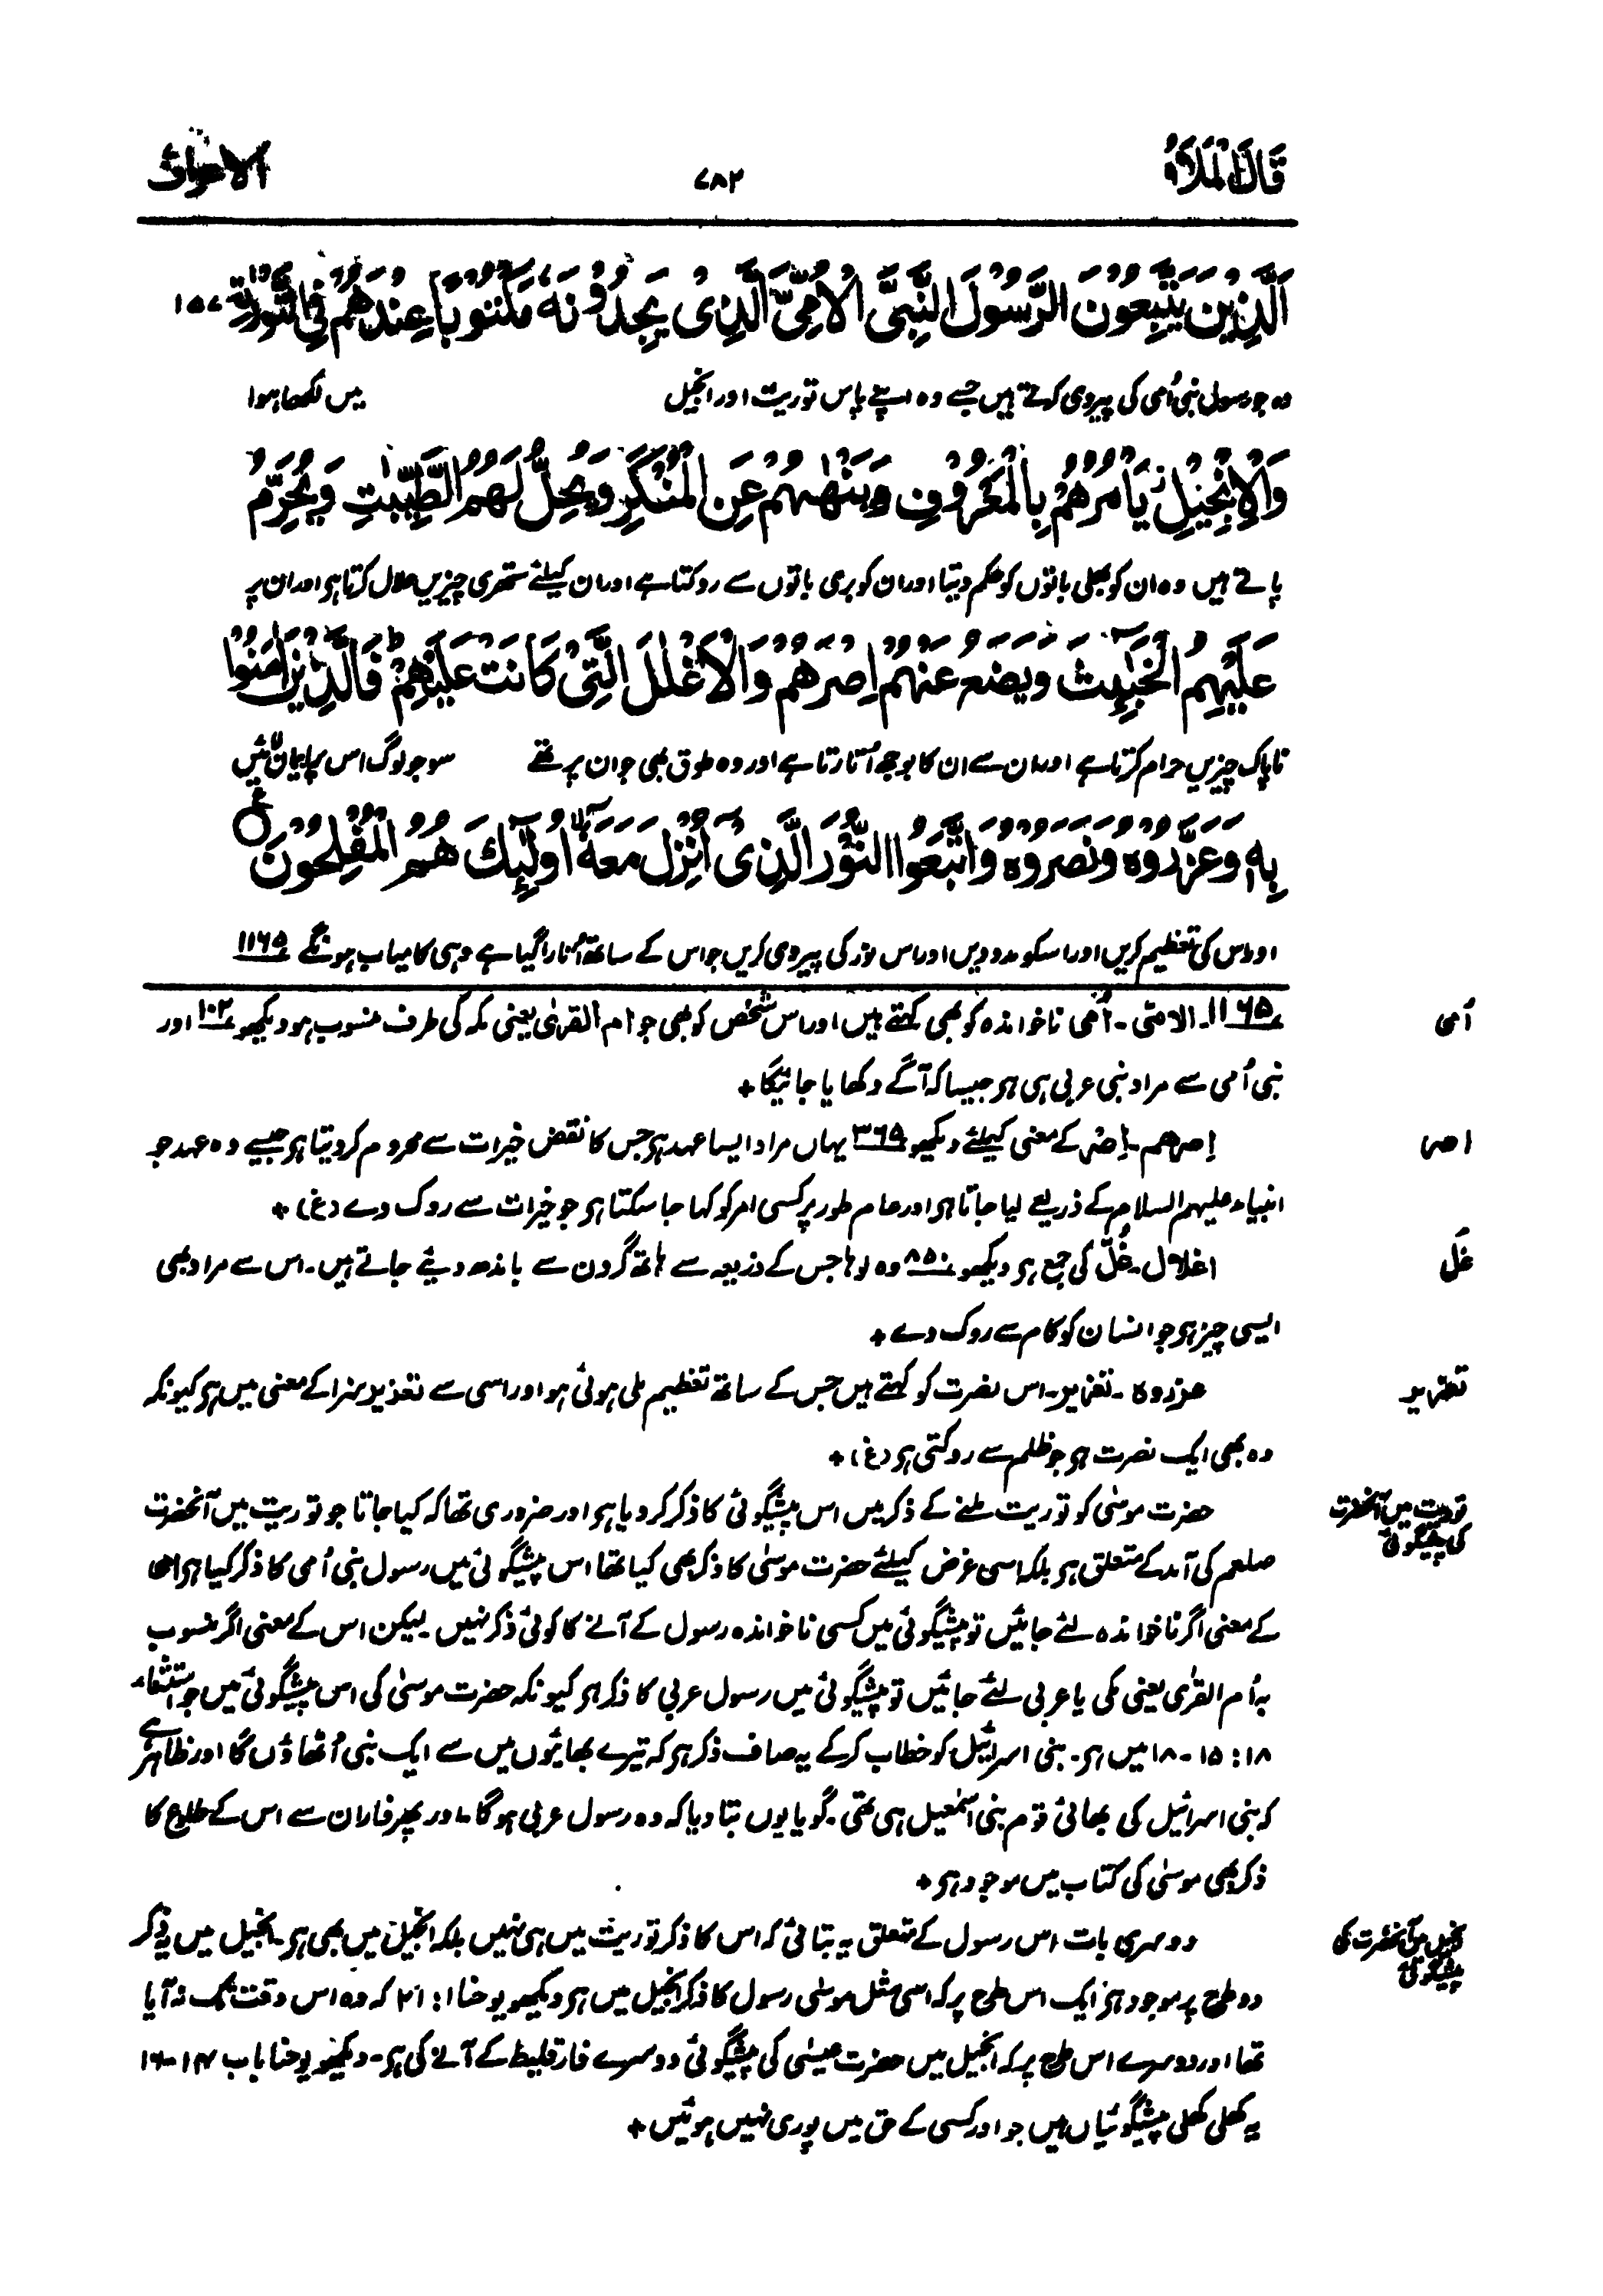 قَالَ الْمَلَأُ
۷۸۲
الاعراف
اَلَّذِیْنَ یَتَّبِعُوْنَ الرَّسُوْلَ النَّبِیَّ الْاُمِّیَّ الَّذِیْ یَجِدُوْنَهٗ مَکْتُوْبًا عِنْدَهُمْ فِی التَّوْرٰىةِ ۱۵۷
وہ جو رسول نبی اُمی کی پیروی کرتے ہیں جسے وہ اپنے پاس توریت اور انجیل میں لکھا ہوا
وَالْاِنْجِیْلِ یَاْمُرُهُمْ بِالْمَعْرُوْفِ وَیَنْهٰىهُمْ عَنِ الْمُنْکَرِ وَیُحِلُّ لَهُمُ الطَّیِّبٰتِ وَیُحَرِّمُ
پاتے ہیں وہ ان کو بھلی باتوں کو حکم دیتا اور ان کو بری باتوں سے روکتا ہے اور ان کیلئے ستھری چیزیں حلال کرتا ہی اور ان پر
عَلَیْهِمُ الْخَبٰٓئِثَ وَیَضَعُ عَنْهُمْ اِصْرَهُمْ وَالْاَغْلٰلَ الَّتِیْ کَانَتْ عَلَیْهِمْ ؕ فَالَّذِیْنَ اٰمَنُوْا
ناپاک چیزیں حرام کرتا ہے اور ان سے ان کا بوجھ اُتارتا ہے اور وہ طوق بھی جو ان پر تھے سو جو لوگ اس پر ایمان لائیں
بِهٖ وَعَزَّرُوْهُ وَنَصَرُوْهُ وَاتَّبَعُوا النُّوْرَ الَّذِیْٓ اُنْزِلَ مَعَهٗٓ ۙ اُولٰٓئِکَ هُمُ الْمُفْلِحُوْنَ ع
اور اس کی تعظیم کریں اور اسکو مدد دیں اور اس نور کی پیروی کریں جو اس کے ساتھ اُتارا گیا ہے وہی کامیاب ہونگے ۱۱۶۵
اُمی
۱۱۶۵۔ الامّی ۔ اُمی ناخواندہ کو بھی کہتے ہیں اور اس شخص کو بھی جو ام القریٰ یعنی مکہ کی طرف منسوب ہو دیکھو ۱۰۲ اور
نبی اُمی سے مراد نبی عربی ہی ہی جیسا کہ آگے دکھایا جائیگا +
اصر
اِصرھم ۔ اِصْر کے معنی کیلئے دیکھو ۳۶۵ یہاں مراد ایسا عہد ہی جس کا نقض خیرات سے محروم کر دیتا ہی جیسے وہ عہد جو
انبیاء علیہم السلام کے ذریعے لیا جاتا ہی اور عام طور پر کسی امر کو کہا جا سکتا ہی جو خیرات سے روک دے (غ) +
غل
اغلال ۔ غُلّ کی جمع ہی دیکھو ۸۵۰ وہ لوہا جس کے ذریعہ سے ہاتھ گردن سے باندھ دیئے جاتے ہیں۔ اس سے مراد بھی
ایسی چیز ہی جو انسان کو کام سے روک دے +
تعزیر
عزروہ ۔ تعزیر ۔ اس نصرت کو کہتے ہیں جس کے ساتھ تعظیم ملی ہوئی ہو اور اسی سے تعذیر سزا کے معنی میں ہی کیونکہ
وہ بھی ایک نصرت ہی جو ظلم سے روکتی ہی (غ) +
توریت میں آنحضرت
کی پیشگوئی
حضرت موسیٰ کو توریت ملنے کے ذکر میں اس پیشگوئی کا ذکر کر دیا ہی اور ضروری تھا کہ کیا جاتا جو توریت میں آنحضرت
صلعم کی آمد کے متعلق ہی بلکہ اسی غرض کیلئے حضرت موسیٰ کا ذکر بھی کیا تھا اس پیشگوئی میں رسول نبی اُمی کا ذکر کیا ہی امی
کے معنی اگر ناخواندہ لئے جائیں تو پیشگوئی میں کسی ناخواندہ رسول کے آنے کا کوئی ذکر نہیں۔ لیکن اس کے معنی اگر منسوب
بہ اُم القریٰ یعنی مکی یا عربی لئے جائیں تو پیشگوئی میں رسول عربی کا ذکر ہی کیونکہ حضرت موسیٰ کی اس پیشگوئی میں جو استثناء
۱۸ : ۱۵ - ۱۸ میں ہی۔ بنی اسرائیل کو خطاب کر کے یہ صاف ذکر ہی کہ تیرے بھائیوں میں سے ایک نبی اُٹھاؤں گا اور ظاہر ہے
کہ بنی اسرائیل کی بھائی قوم بنی اسمٰعیل ہی تھی۔ گویا یوں بتا دیا کہ وہ رسول عربی ہوگا۔ اور پھر فاران سے اس کے طلوع کا
ذکر بھی موسیٰ کی کتاب میں موجود ہی +
انجیل میں آنحضرت کی
پیشگوئی
دوسری بات اس رسول کے متعلق یہ بتائی کہ اس کا ذکر توریت میں ہی نہیں بلکہ انجیل میں بھی ہی۔ انجیل میں یہ ذکر
دو طرح پر موجود ہی ایک اس طرح پر کہ اسی مثل موسیٰ رسول کا ذکر انجیل میں ہی دیکھو یوحنا ۱ : ۲۱ کہ وہ اس وقت تک نہ آیا
تھا اور دوسرے اس طرح پر کہ انجیل میں حضرت عیسیٰ کی پیشگوئی دوسرے فارقلیط کے آنے کی ہی۔ دیکھو یوحنا باب ۱۴-۱۶
یہ کھلی کھلی پیشگوئیاں ہیں جو اور کسی کے حق میں پوری نہیں ہوئیں +